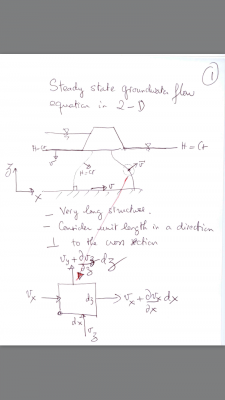 1
Steady state groundwater flow
equation in 2-D
H=Ct
H = Ct
v
H=Ct
v
z
x
v
- Very long structure.
- Consider unit length in a direction
⊥ to the cross section
v_z + ∂v_z/∂z dz
v_x
dz
v_x + ∂v_x/∂x dx
dx
v_z